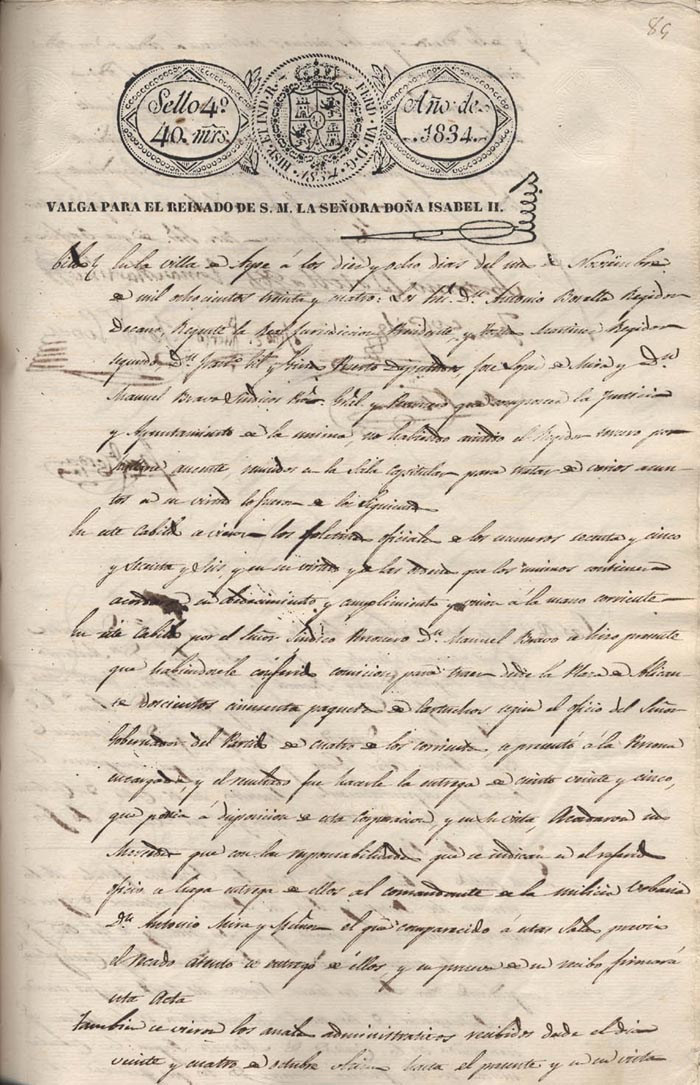 89
Sello 4º
40 mrs.
HISP. ET IND. R. FERD. VII. D. G.
1834
Año de
1834.
VALGA PARA EL REINADO DE S. M. LA SEÑORA DOÑA ISABEL II.
En la villa de Aspe á los diez y ocho dias del mes de Noviembre
de mil ochocientos treinta y cuatro: Los Sres. Dn. Antonio Regidor
Decano, Regente la Real Jurisdicion Martinez Regidor
segundo, Dn. Diputados, José Lopez de Mira y Dn.
Manuel Bravo Sindicos Pror. Gral. y Personero que componen la Justicia
y Ayuntamiento de la misma, no habiendo asistido el Regidor tercero por
ausente, reunidos en la Sala capitular para tratar de varios asun-
tos a su virtud lo hicieron de los siguientes
En este Cabildo se vieron los boletines oficiales de los numeros sesenta y cinco
y sesenta y seis, y en su virtud y de las ordenes que los mismos contienen
acordaron su obedecimiento y cumplimiento y á la mano corriente
En este Cabildo por el Señor Sindico Personero Dn. Manuel Bravo se hizo presente
que habiendosele conferido comision para traer desde la Plaza de Alican-
te doscientos cincuenta paquetes de cartuchos segun el oficio del Señor
Gobernador del Partido de cuatro de los corrientes, se presentó á la Persona
encargada, y el resultado fue hacerle la entrega de ciento veinte y cinco,
que ponia á disposicion de esta Corporacion y en su vista, Acordaron sus
Mercedes que con las responsabilidades que se indican en el referido
oficio se haga entrega de ellos al comandante de la milicia Urbana
Dn. Antonio Mira y el que comparecido á estas Salas previo
el recado atento se entregó de ellos y en prueba de su recibo firmará
esta Acta
Tambien se vieron los anales administrativos recibidos desde el dia
veinte y cuatro de octubre ultimo hasta el presente y en su vista